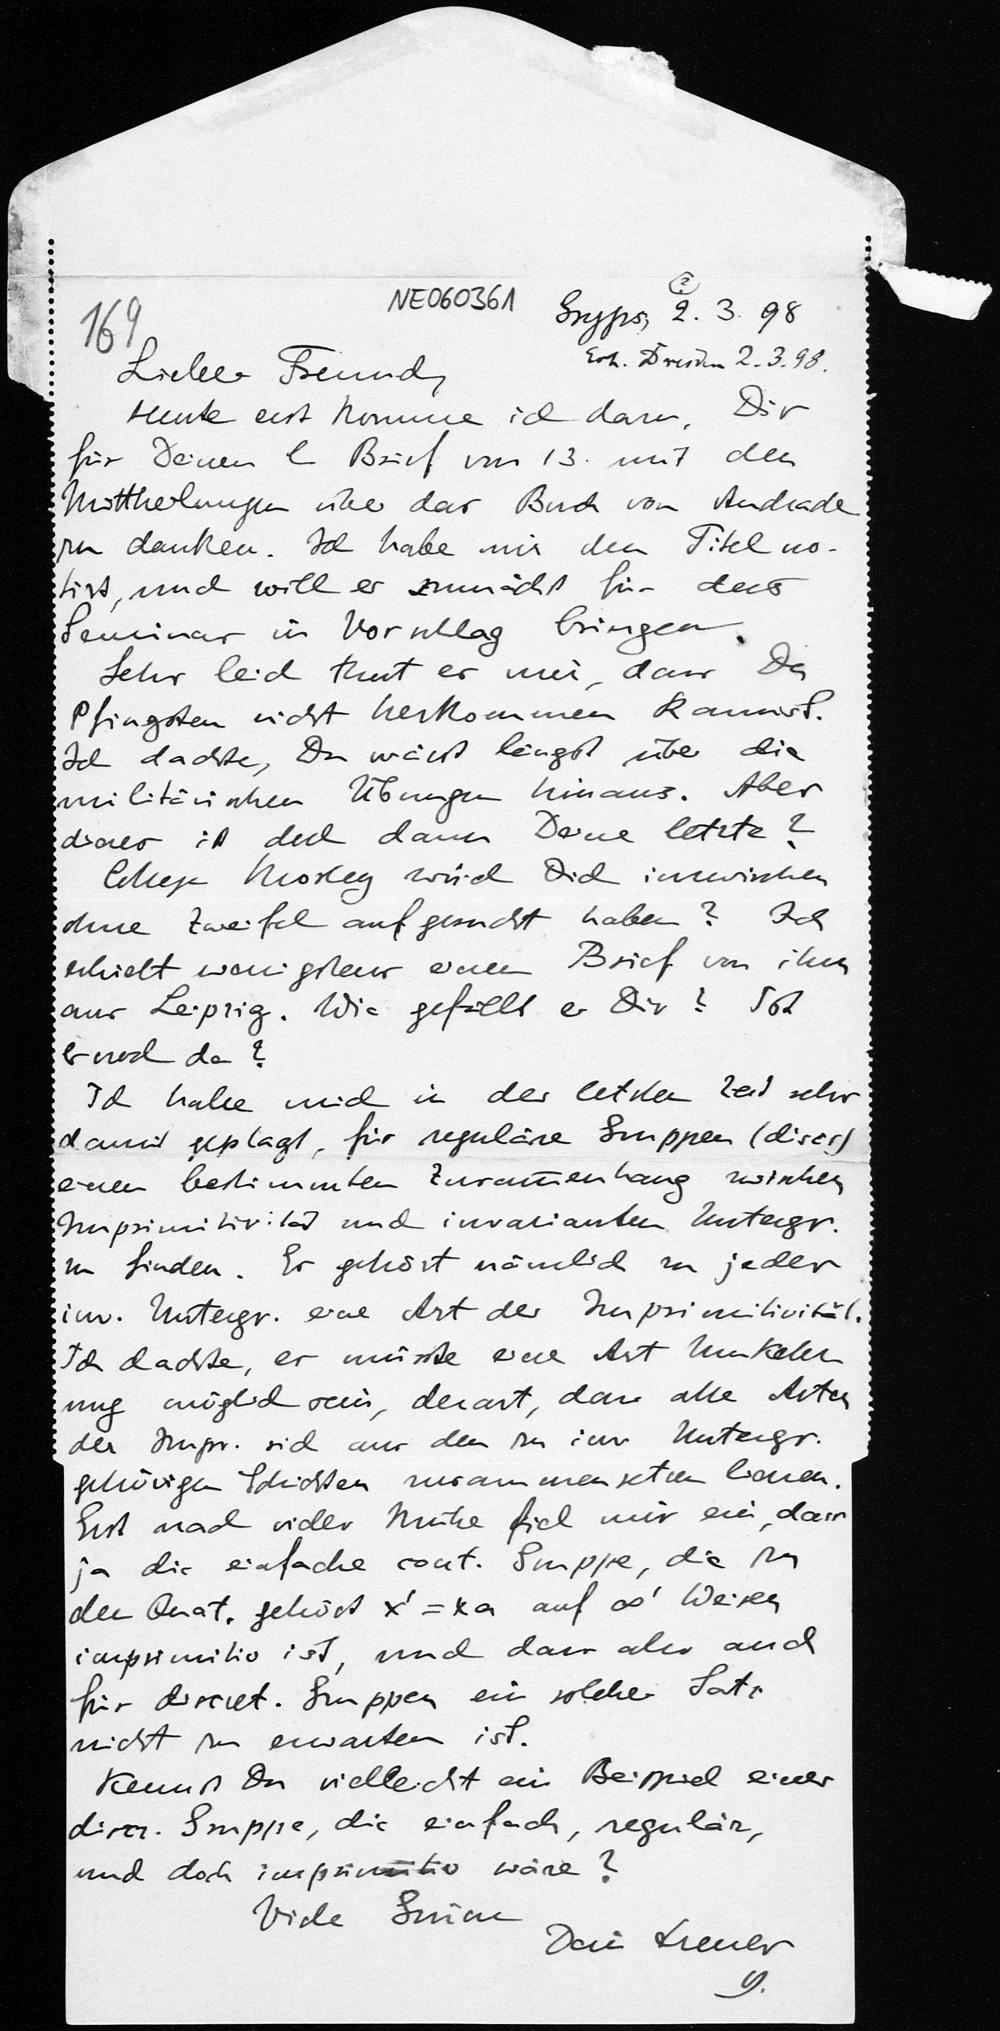 169
NE060361
Gryps, 2. 3. 98
(?)
Erh. Dresden 2.3.98.
Lieber Freund,
Heute erst komme ich dazu, Dir
für Deinen l. Brief vom 13. mit den
Mittheilungen über das Buch von Andrade
zu danken. Ich habe mir den Titel no-
tirt, und will es zunächst für das
Seminar in Vorschlag bringen.
Sehr leid thut es mir, dass Du
Pfingsten nicht herkommen kannst.
Ich dachte, Du wärst längst über die
militärischen Übungen hinaus. Aber
dieses ist doch dann Deine letzte?
College Morley wird Dich inzwischen
ohne Zweifel aufgesucht haben? Ich
erhielt wenigstens einen Brief von ihm
aus Leipzig. Wie gefällt er Dir? Ist
er noch da?
Ich habe mich in der letzten Zeit sehr
damit geplagt, für reguläre Gruppen (discr)
einen bestimmten Zusammenhang zwischen
Imprimitivität und invarianten Untergr.
zu finden. Es gehört nämlich zu jeder
inv. Untergr. eine Art der Imprimitivität.
Ich dachte, es müsste eine Art Umkehr
ung möglich sein, derart, dass alle Arten
der Impr. sich aus den zu inv Untergr.
gehörigen Schichten zusammensetzen liessen.
Erst nach vieler Mühe fiel mir ein, dass
ja die einfache cont. Gruppe, die zu
den Quat. gehört x' = xa auf ∞' Weisen
imprimitiv ist, und dass also auch
für discret. Gruppen ein solcher Satz
nicht zu erwarten ist.
Kennst Du vielleicht ein Beispiel einer
discr. Gruppe, die einfach, regulär,
und doch imprimitiv wäre?
Viele Grüsse
Dein treuer